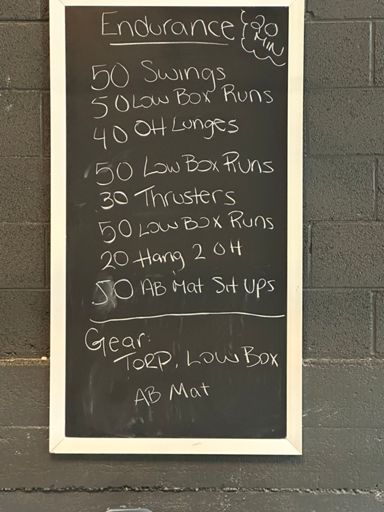 Endurance
20 MIN
50 Swings
50 Low Box Runs
40 OH Lunges
50 Low Box Runs
30 Thrusters
50 Low Box Runs
20 Hang 2 OH
50 AB Mat Sit Ups
Gear:
TORP, Low Box
AB Mat